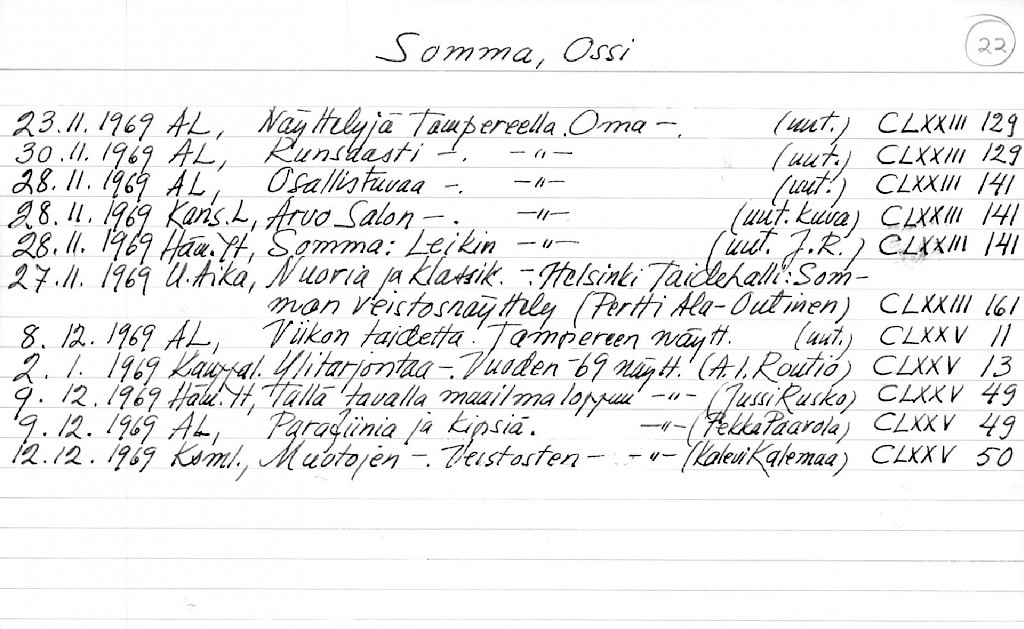 Somma, Ossi
22
23.11.1969 AL, Näyttelyjä Tampereella. Oma –. (uut.) CLXXIII 129
30.11.1969 AL, Runsaasti –. –"– (uut.) CLXXIII 129
28.11.1969 AL, Osallistuvaa –. –"– (uut.) CLXXIII 141
28.11.1969 Kans.L, Arvo Salon –. –"– (uut. kuva) CLXXIII 141
28.11.1969 Häm.Yht, Somma: Leikin –"– (uut. J.R.) CLXXIII 141
27.11.1969 U.Aika, Nuoria ja klassik. –. Helsinki Taidehalli: Som-
man veistosnäyttely (Pertti Ala-Outinen) CLXXIII 161
8.12.1969 AL, Viikon taidetta. Tampereen näytt. (uut.) CLXXV 11
2.1.1969 Kauppal. Ylitarjontaa –. Vuoden -69 näytt. (A.I. Routio) CLXXV 13
9.12.1969 Häm.Yht, Tällä tavalla maailma loppuu –"– (Jussi Rusko) CLXXV 49
9.12.1969 AL, Parafiinia ja kipsiä. –"– (Pekka Paavola) CLXXV 49
12.12.1969 Ksml., Muotojen –. Veistosten – –"– (Kalevi Kalemaa) CLXXV 50